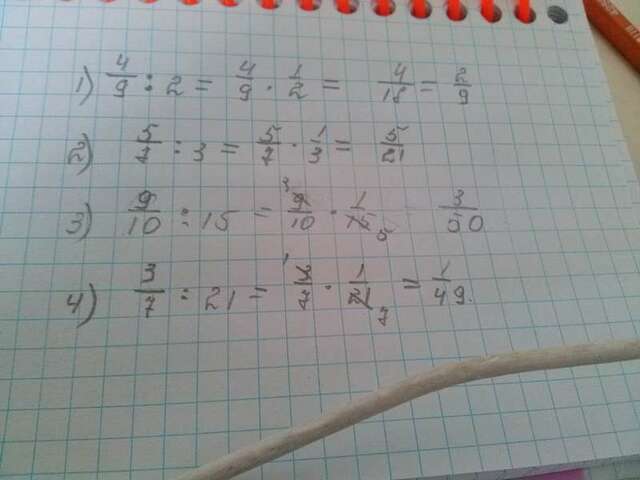 1) 4/9 : 2 = 4/9 · 1/2 = 4/18 = 2/9
2) 5/7 : 3 = 5/7 · 1/3 = 5/21
3) 9/10 : 15 = 3 9/10 · 1/15 5 3/50
4) 3/7 : 21 = 1 3/7 · 1/21 7 = 1/49.